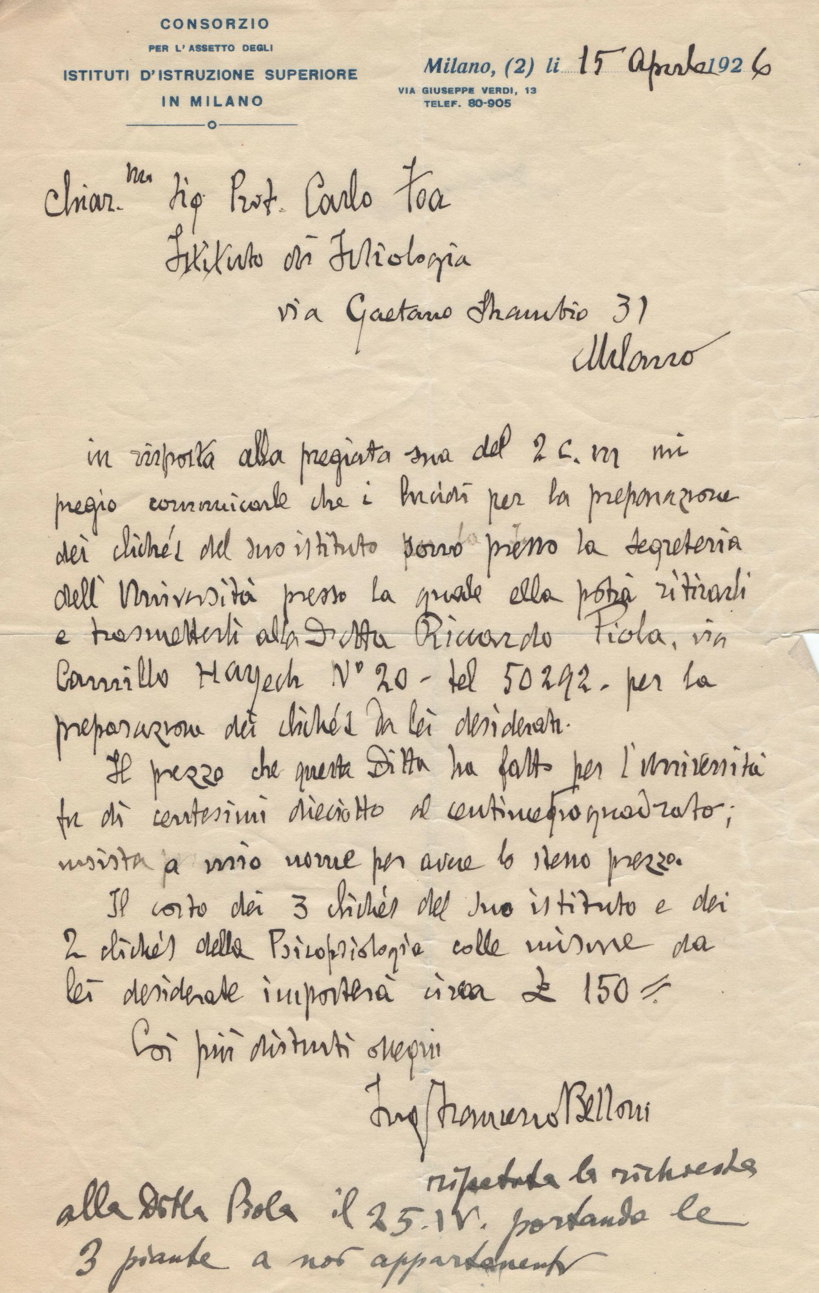 CONSORZIO
PER L'ASSETTO DEGLI
ISTITUTI D'ISTRUZIONE SUPERIORE
IN MILANO
Milano, (2) li 15 Aprile 1926
VIA GIUSEPPE VERDI, 13
TELEF. 80-905
Chiar.mo Sig Prof. Carlo Foa
Istituto di Fisiologia
via Gaetano Strambio 31
Milano
in risposta alla pregiata sua del 2 c.m mi
pregio comunicarle che i lucidi per la preparazione
dei clichés del suo istituto porrò presso la segreteria
dell'Università presso la quale ella potrà ritirarli
e trasmetterli alla Ditta Riccardo Piola, via
Camillo Hayech N° 20 - tel 50292 - per la
preparazione dei clichés da lei desiderati.
Il prezzo che questa Ditta ha fatto per l'Università
fu di centesimi dieciotto al centimetroquadrato;
insista a mio nome per avere lo stesso prezzo.
Il costo dei 3 clichés del suo istituto e dei
2 clichés della Psicofisiologia colle misure da
lei desiderate importerà circa £ 150 =
Coi più distinti ossequi
Ing Francesco Belloni
ripetuta la richiesta
alla Ditta Piola il 25.IV. portando le
3 piante a noi appartenenti